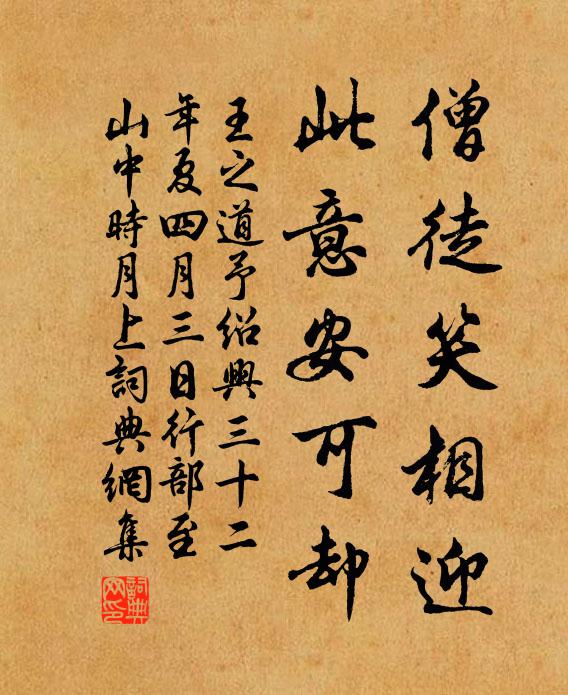 僧徒笑相迎
此意安可却
王之道予绍興三十二
年夏四月三日行部至
山中時月上詞典網集
詞典网印